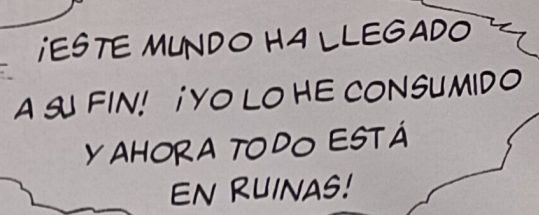 ¡ESTE MUNDO HA LLEGADO
A SU FIN! ¡YO LO HE CONSUMIDO
Y AHORA TODO ESTÁ
EN RUINAS!